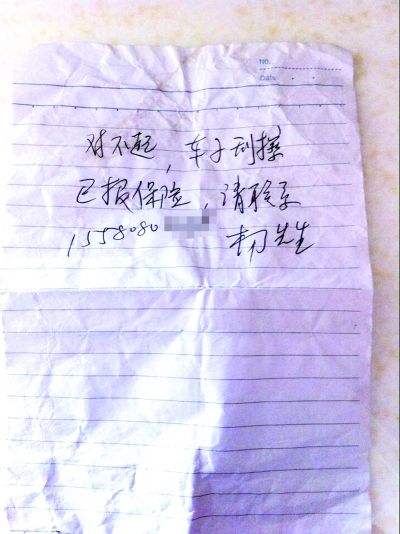 No.
Date . .
对不起,车子刮擦
已报保险,请联系
1558080 杨先生